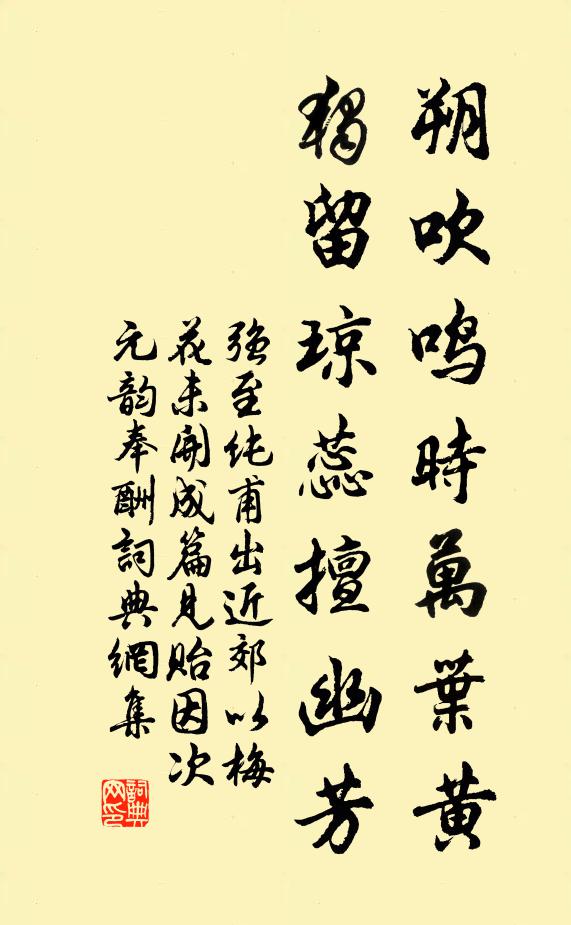 朔吹鸣時萬葉黄
獨留琼蕊擅幽芳
强至纯甫出近郊以梅
花未開成篇見貽因次
元韵奉酬詞典網集
詞典
网印